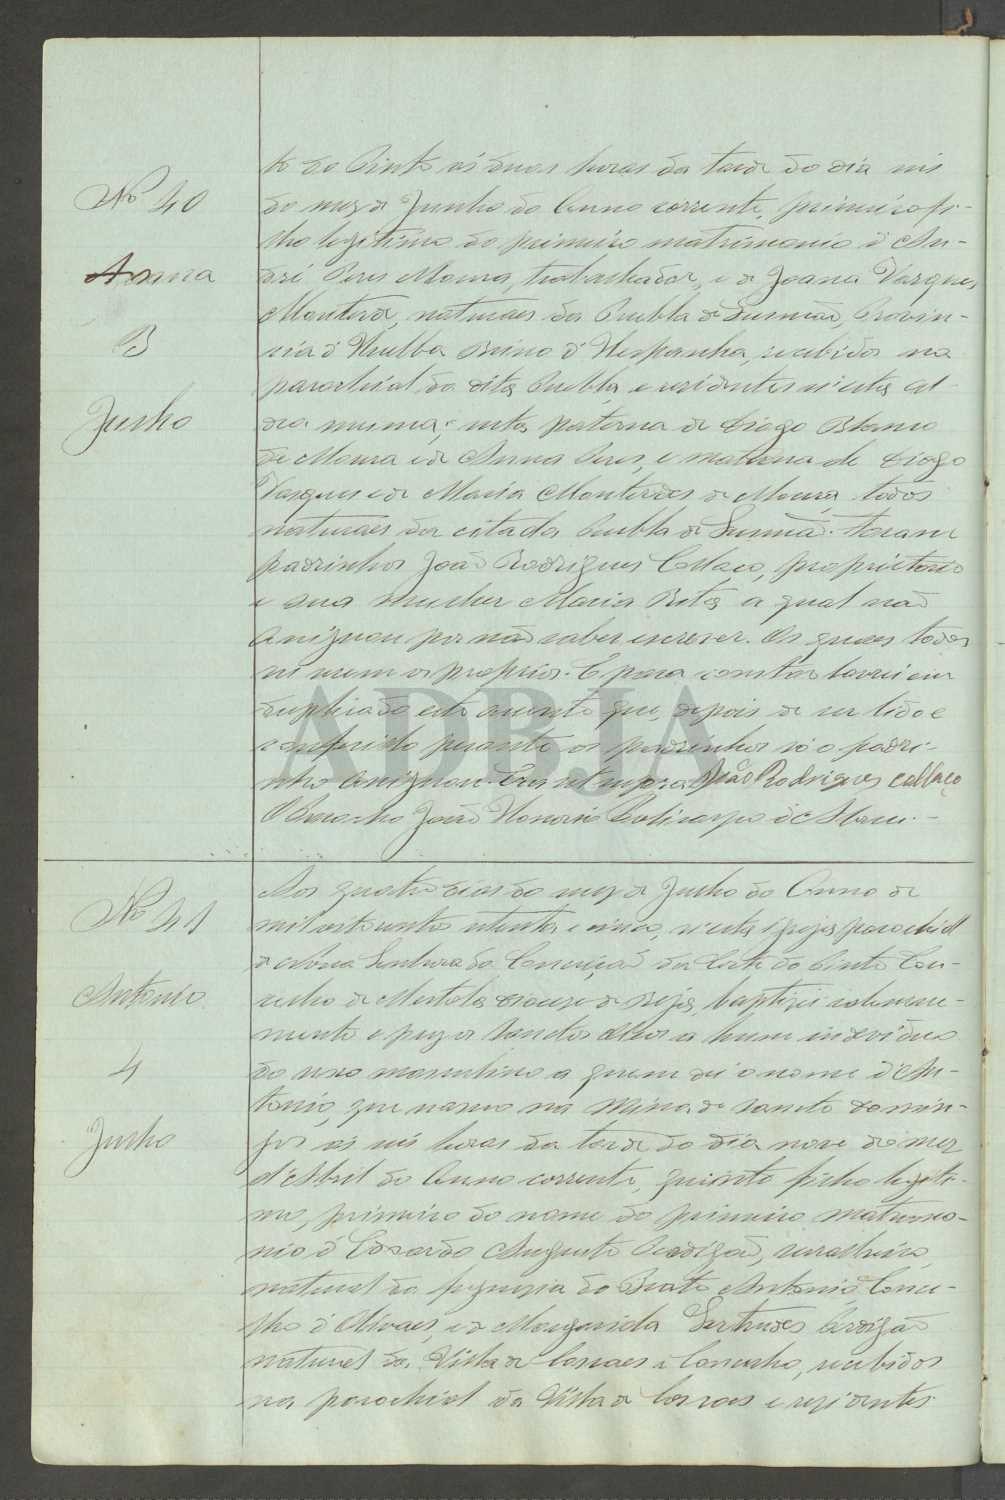 No 40
Anna
3
Junho
to do Pinto ás duas horas da tarde do dia seis
do mez de Junho do Anno corrente, primeiro fi-
lho legitimo do primeiro matrimonio d'An-
dré Peres Moura, trabalhador, e de Joana Vasques
Monteza, naturaes da Puebla de Gusmão, Provin-
cia d'Huelba Reino d'Hespanha, recebidos na
parochial da dita Puebla, e residentes n'esta Al-
dea mesma; neta paterna de Diogo Blanco
de Moura e de Anna Peres, e materna de Diogo
Vasques e de Maria Monterdes de Moura, todos
naturaes da citada Puebla de Gusmão. Foram
padrinhos João Rodrigues Collaço, proprietario
e sua mulher Maria Rita a qual não
assignou por não saber escrever. Os quaes todos
sei serem os proprios. E para constar lavrei em
duplicado este assento que, depois de ser lido e
conferido perante os padrinhos só o padri-
nho assignou. Era ut supra João Rodrigues collaço
O Parocho João Honorio Policarpo d'Abreu.-
No 41
Antonio
4
Junho
Aos quatro dias do mez de Junho do Anno de
mil oitocentos oitenta e cinco, n'esta igreja parochial
de Nossa Senhora da Conceição da Corte do Pinto Con-
celho de Mertola diocese de Beja, baptizei solemne-
mente e puz os Sanctos Oleos a hum individuo
do sexo masculino a quem dei o nome d'An-
tonio, que nasceu na Mina de Sancto Domin-
gos ás seis horas da tarde do dia nove do mez
d'Abril do Anno corrente, quinto filho legiti-
mo, primeiro do nome do primeiro matrimo-
nio d'Eduardo Augusto Perdigão, serralheiro,
natural da freguezia do Beato Antonio, Conce-
lho d'Olivaes, e de Margarida Gertrudes Perdigão
natural da Villa de Cascaes e Concelho, recebidos
na parochial da Villa de Cascaes e residentes
ADBJA